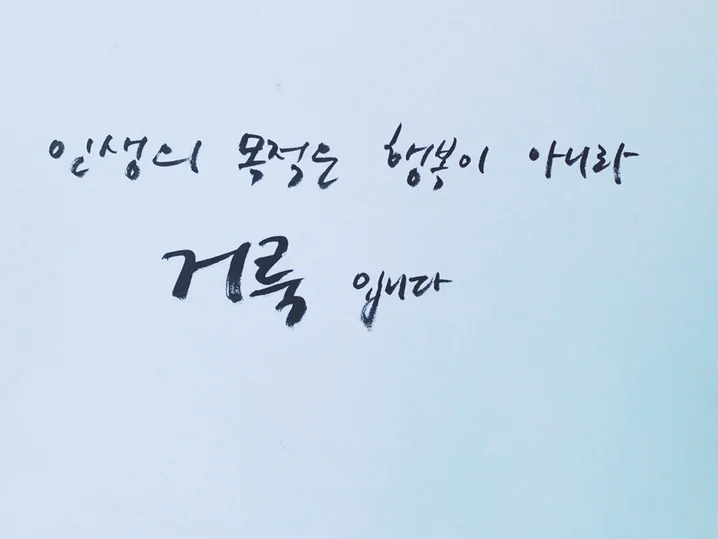 인생의 목적은 행복이 아니라
거룩 입니다